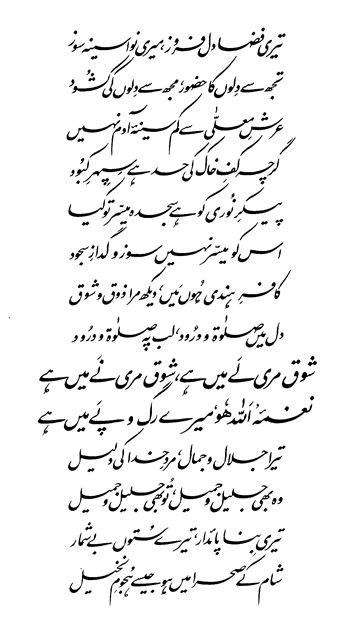 تیری فضا دل فروز، میری نوا سینہ سوز
تجھ سے دلوں کا حضور، مجھ سے دلوں کی کشود
عرشِ معلّٰی سے کم سینۂ آدم نہیں
گرچہ کفِ خاک کی حد ہے سپہرِ کبود
پیکرِ نوری کو ہے سجدہ میسّر تو کیا
اس کو میسّر نہیں سوز و گدازِ سجود
کافرِ ہندی ہوں میں، دیکھ مرا ذوق و شوق
دل میں صلوٰۃ و درُود، لب پہ صلوٰۃ و درُود
شوق مری لَے میں ہے، شوق مری نَے میں ہے
نغمۂ 'اللہ ھُو' میرے رگ و پَے میں ہے
تیرا جلال و جمال، مردِ خدا کی دلیل
وہ بھی جلیل و جمیل، تُو بھی جلیل و جمیل
تیری بِنا پائدار، تیرے ستُوں بے شمار
شام کے صحرا میں ہو جیسے ہجومِ نخیل